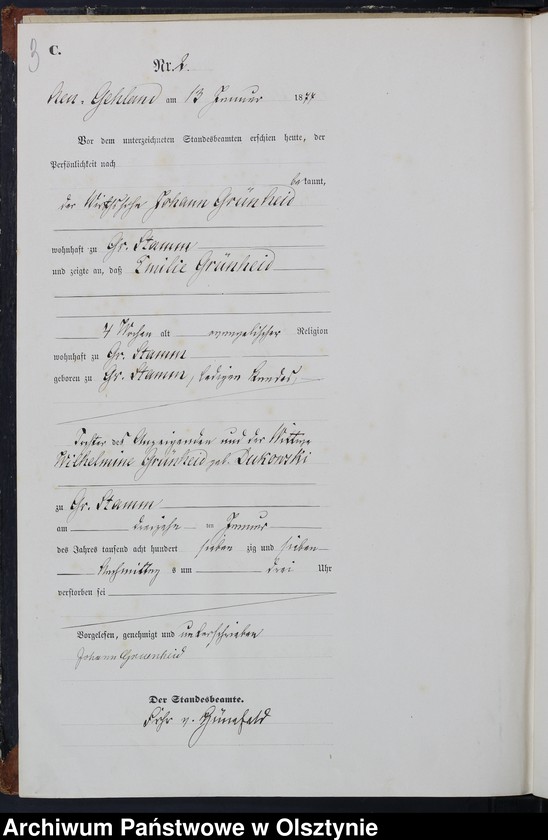 3
C.
Nr. 2.
Neu-Gehland am 13 Januar 1877
Vor dem unterzeichneten Standesbeamten erschien heute, der
Persönlichkeit nach
bekannt,
der Wirthssohn Johann Grünheid
wohnhaft zu Gr. Stamm
und zeigte an, daß Emilie Grünheid
4 Wochen alt evangelischer Religion
wohnhaft zu Gr. Stamm
geboren zu Gr. Stamm, ledigen Standes,
Tochter des Anzeigenden und der
Wilhelmine Grünheid geb. Dukowski
zu Gr. Stamm
am ten Januar
des Jahres tausend acht hundert sieben zig und sieben
Nachmittag s um drei Uhr
verstorben sei
Vorgelesen, genehmigt und unterschrieben
Johann Gruenheid
Der Standesbeamte.
Archiwum Państwowe w Olsztynie